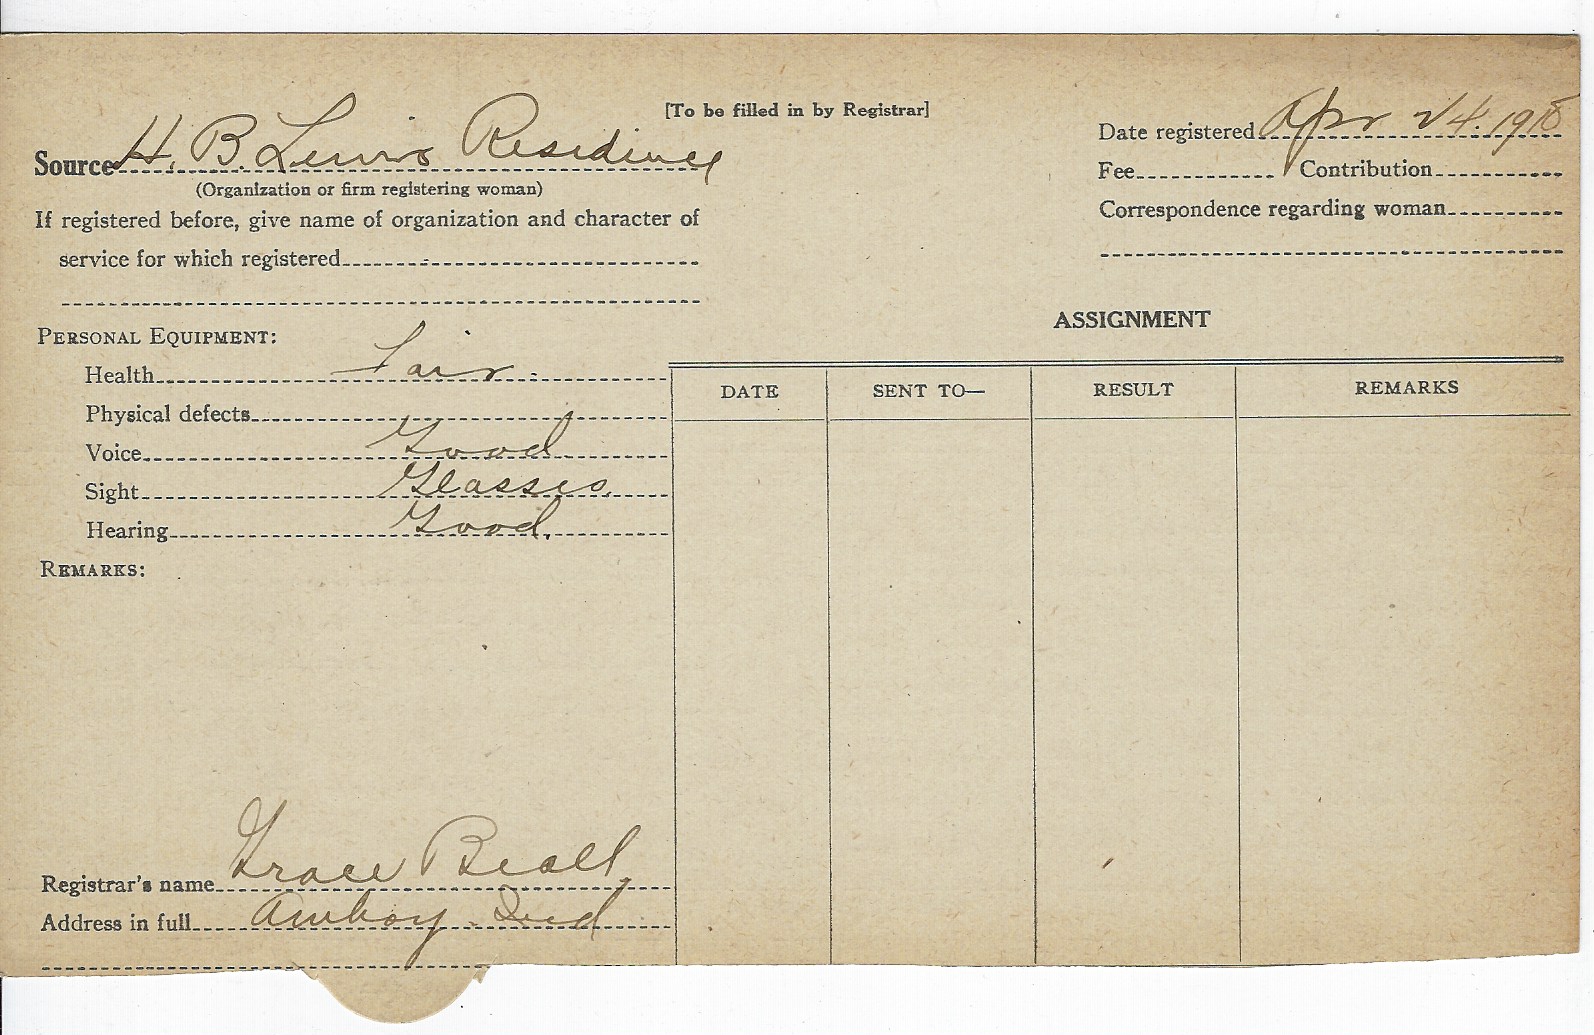 [To be filled in by Registrar]
Source H. B. Lewis Residence
(Organization or firm registering woman)
Date registered Apr 24. 1918
Fee Contribution
Correspondence regarding woman
If registered before, give name of organization and character of
service for which registered
PERSONAL EQUIPMENT:
Health Fair.
Physical defects
Voice Good
Sight Glasses.
Hearing Good.
REMARKS:
Registrar's name Grace Beall,
Address in full Amboy. Ind
ASSIGNMENT
DATE SENT TO— RESULT REMARKS